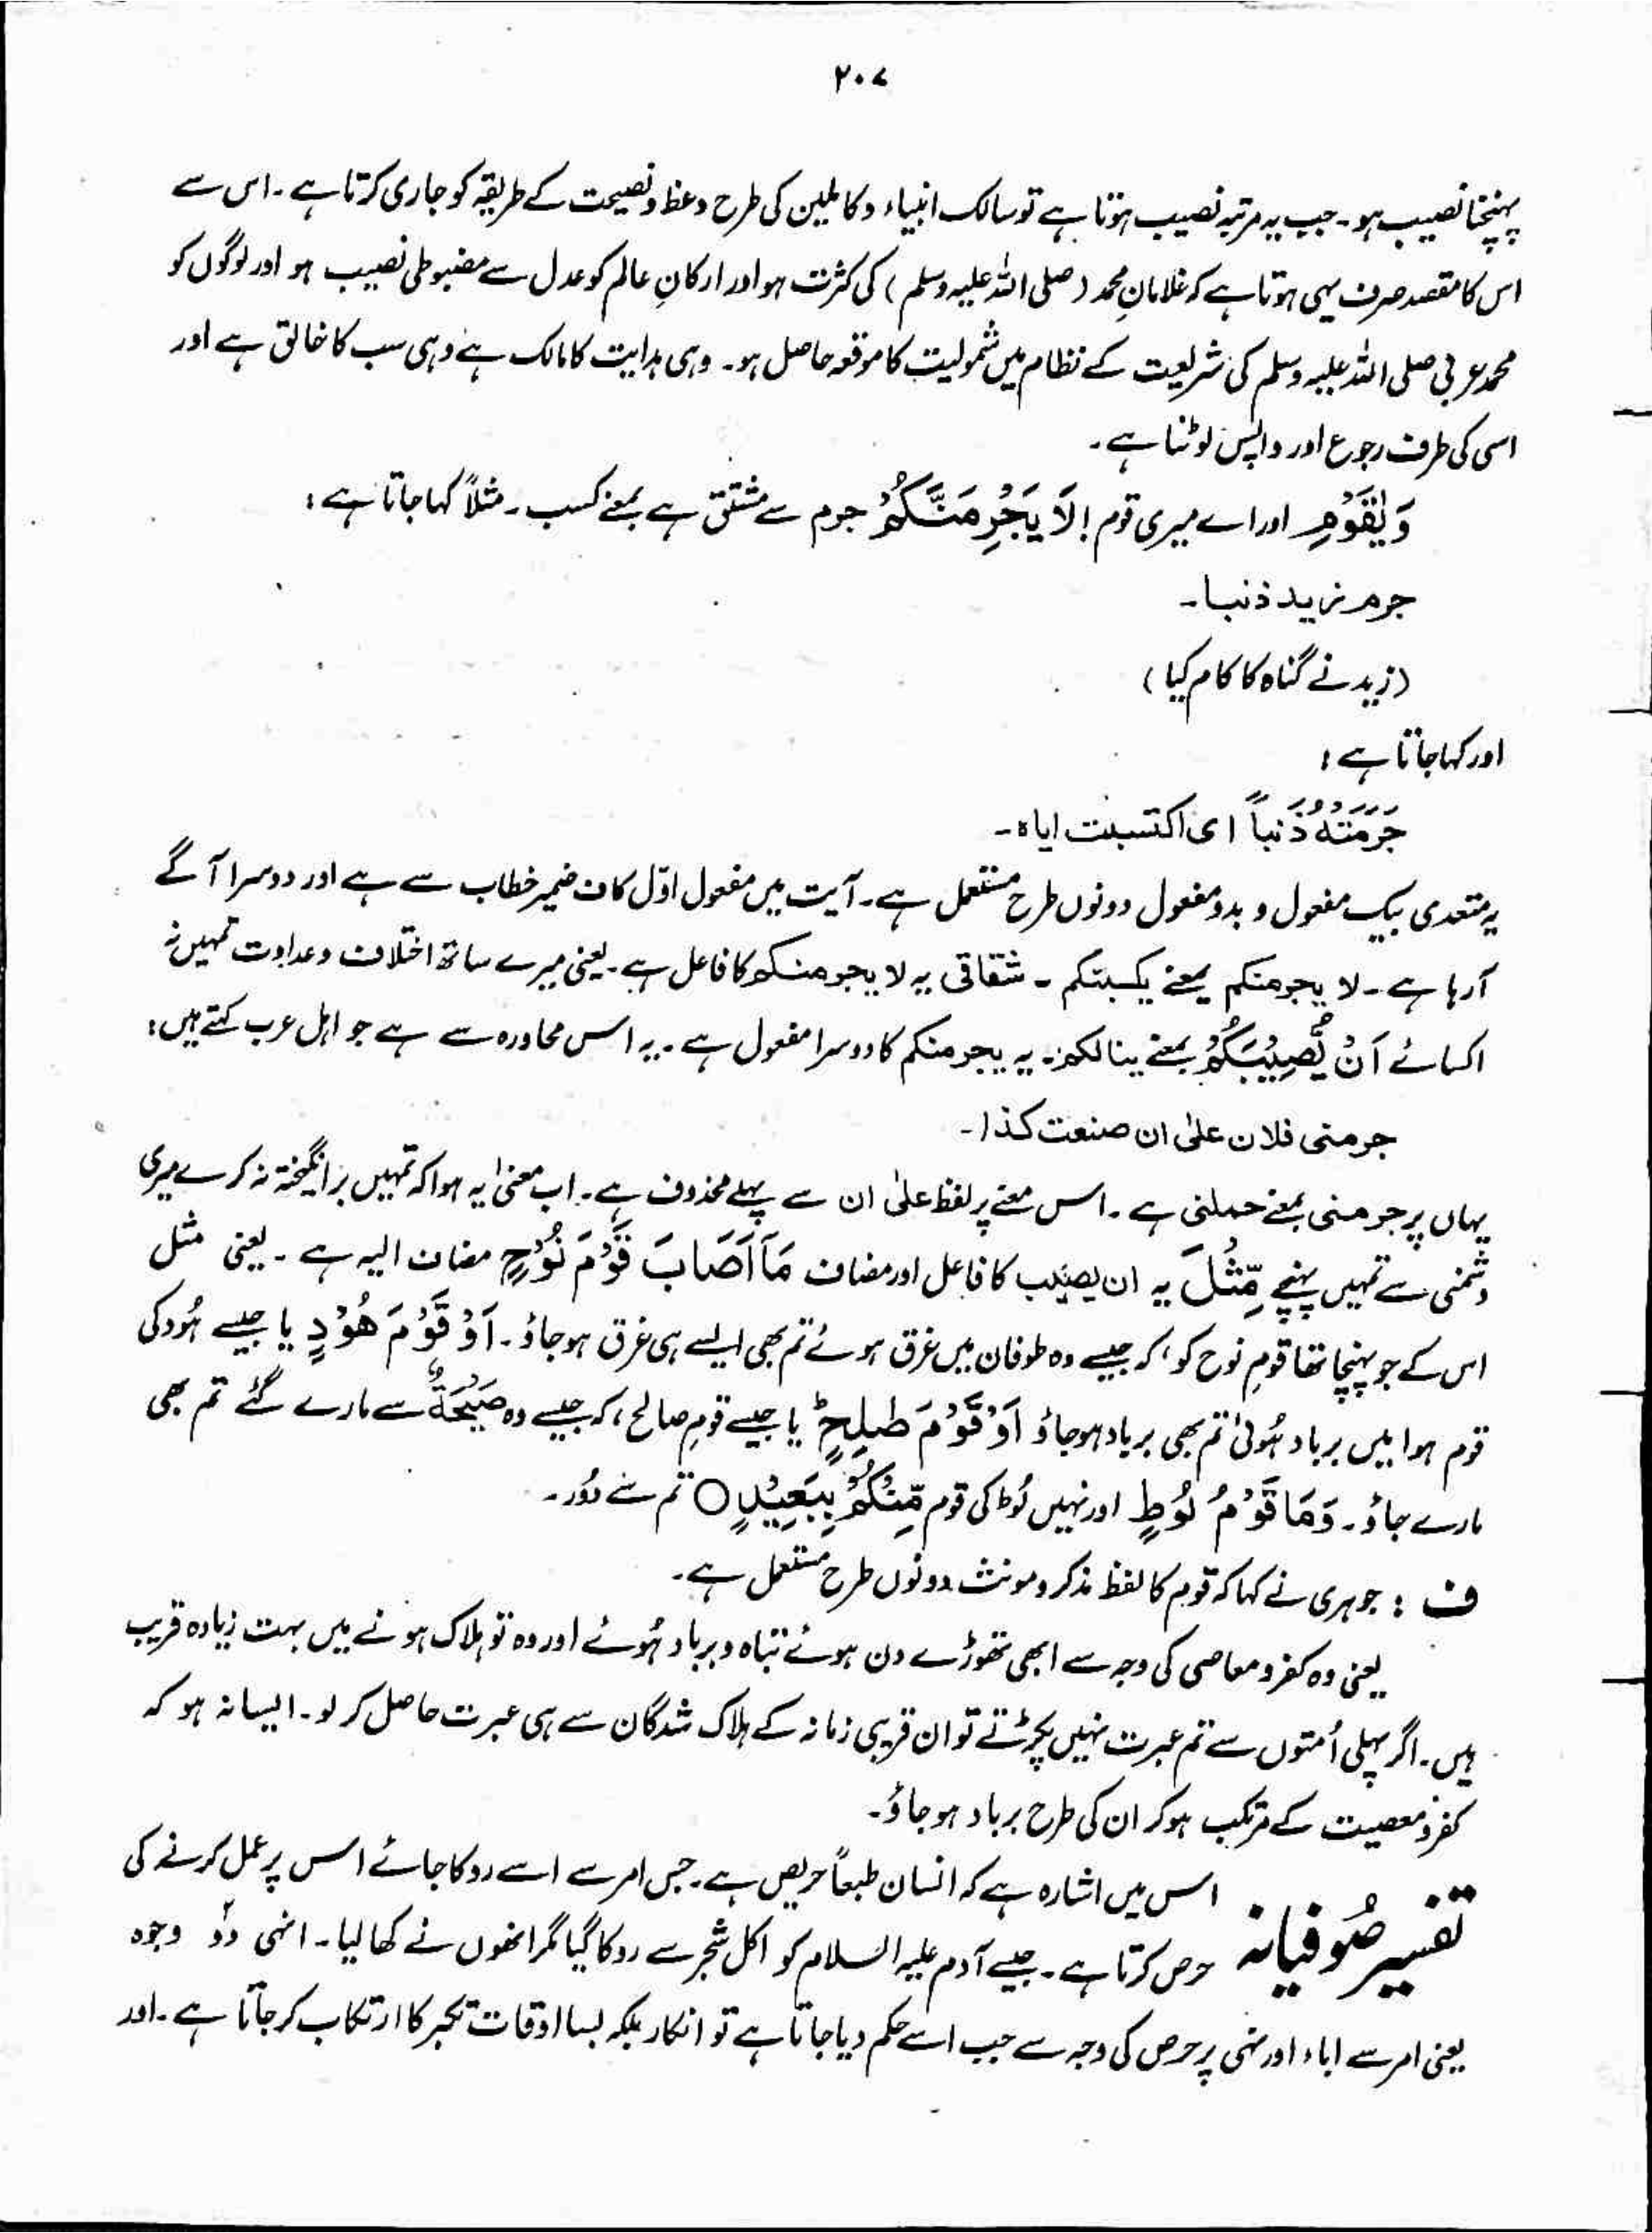 ۲۰۷
پہنچنا نصیب ہو۔ جب یہ مرتبہ نصیب ہوتا ہے تو سالک انبیاء و کاملین کی طرح وعظ و نصیحت کے طریقہ کو جاری کرتا ہے۔ اس سے
اس کا مقصد صرف یہی ہوتا ہے کہ غلامانِ محمد (صلی اللہ علیہ وسلم) کی کثرت ہو اور ارکانِ عالم کو عدل سے مضبوطی نصیب ہو اور لوگوں کو
محمد عربی صلی اللہ علیہ وسلم کی شریعت کے نظام میں شمولیت کا موقعہ حاصل ہو۔ وہی ہدایت کا مالک ہے وہی سب کا خالق ہے اور
اسی کی طرف رجوع اور واپس لوٹنا ہے۔
وَيٰقَوْمِ اور اے میری قوم! لَا يَجْرِمَنَّكُمْ جرم سے مشتق ہے بمعنے کسب۔ مثلاً کہا جاتا ہے:
جرم زید ذنبا۔
(زید نے گناہ کا کام کیا)
اور کہا جاتا ہے:
جَرَمْتُهُ ذَنْباً ای اکتسبت ایاہ۔
یہ متعدی بیک مفعول و بدو مفعول دونوں طرح مستعمل ہے۔ آیت میں مفعول اوّل کاف ضمیر خطاب سے ہے اور دوسرا آگے
آرہا ہے۔ لا یجرمنکم بمعنے یکسبنکم۔ شقاقی یہ لا یجرمنکم کا فاعل ہے۔ یعنی میرے ساتھ اختلاف و عداوت تمہیں نہ
اکسائے اَنْ يُّصِيْبَكُمْ بمعنے ینالکم۔ یہ یجرمنکم کا دوسرا مفعول ہے۔ یہ اس محاورہ سے ہے جو اہل عرب کہتے ہیں:
جرمنی فلان علیٰ ان صنعت کذا۔
یہاں پر جرمنی بمعنے حملنی ہے۔ اس معنے پر لفظ علیٰ ان سے پہلے محذوف ہے۔ اب معنیٰ یہ ہوا کہ تمہیں برانگیختہ نہ کرے میری
دشمنی سے تمہیں پہنچے مِّثْلَ یہ ان یصیب کا فاعل اور مضاف مَآ اَصَابَ قَوْمَ نُوْحٍ مضاف الیہ ہے۔ یعنی مثل
اس کے جو پہنچا تھا قوم نوح کو، کہ جیسے وہ طوفان میں غرق ہوئے تم بھی ایسے ہی غرق ہوجاؤ۔ اَوْ قَوْمَ هُوْدٍ یا جیسے ہُود کی
قوم ہوا میں برباد ہُوئی تم بھی برباد ہوجاؤ اَوْ قَوْمَ صٰلِحٍ یا جیسے قومِ صالح، کہ جیسے وہ صَيْحَةٌ سے مارے گئے تم بھی
مارے جاؤ۔ وَمَا قَوْمُ لُوْطٍ اور نہیں لُوط کی قوم مِّنْكُمْ بِبَعِيْدٍ ○ تم سے دُور۔
ف : جوہری نے کہا کہ قوم کا لفظ مذکر و مونث دونوں طرح مستعمل ہے۔
یعنی وہ کفر و معاصی کی وجہ سے ابھی تھوڑے دن ہوئے تباہ و برباد ہُوئے اور وہ تو ہلاک ہونے میں بہت زیادہ قریب
ہیں۔ اگر پہلی اُمتوں سے تم عبرت نہیں پکڑتے تو ان قریبی زمانہ کے ہلاک شدگان سے ہی عبرت حاصل کر لو۔ ایسا نہ ہو کہ
کفر و معصیت کے مرتکب ہوکر ان کی طرح برباد ہوجاؤ۔
تفسیر صُوفیانہ اس میں اشارہ ہے کہ انسان طبعاً حریص ہے۔ جس امر سے اسے روکا جائے اس پر عمل کرنے کی
حرص کرتا ہے۔ جیسے آدم علیہ السلام کو اکل شجر سے روکا گیا مگر انھوں نے کھا لیا۔ انہی دوؔ وجوہ
یعنی امر سے اباء اور نہی پر حرص کی وجہ سے جب اسے حکم دیا جاتا ہے تو انکار بلکہ بسا اوقات تکبر کا ارتکاب کرجاتا ہے۔ اور